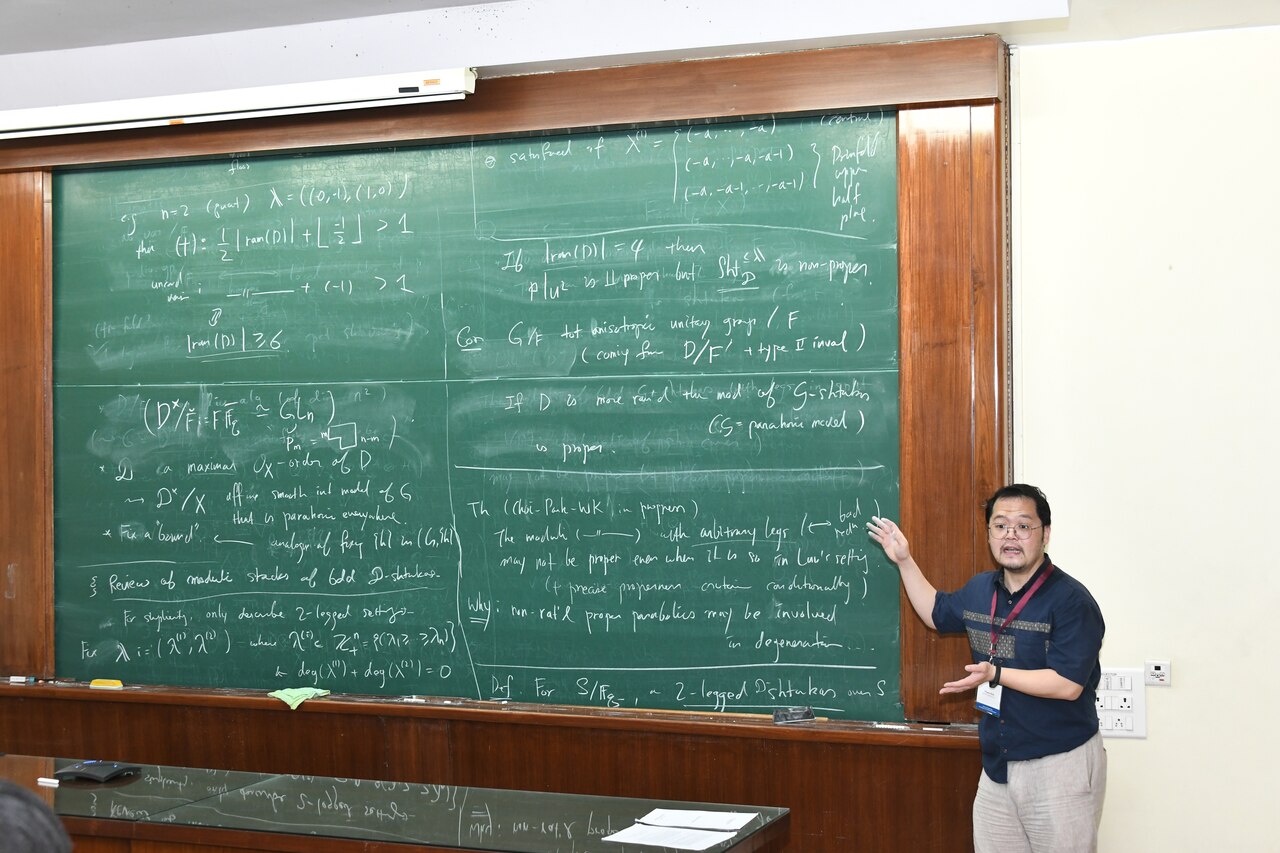 floor
e.g. n=2 (quat) λ = ((0,-1), (1,0))
then (†): 1/2 |ram(D)| + ⌊-1/2⌋ > 1
+ (-1) > 1
|ram(D)| ≥ 6
(D^x/F̆ := F F̄_q ≅ GL_n)
P_m = m n-m
* D a maximal O_X-order of D
⇝ D^x/X affine smooth int model of G
that is parahoric everywhere.
* Fix a "bound" ⟵ analog of fixing {h} in (G, {h})
§ Review of moduli stacks of bdd D-shtukas
For simplicity, only describe 2-legged setting
Fix λ := (λ^(1), λ^(2)) where λ^(i) ∈ Z^n_+ = {(λ_1 ≥ ·· ≥ λ_n)}
& deg(λ^(1)) + deg(λ^(2)) = 0
satisfied if λ^(1) = { (-a, ···, -a) (central)
(-a, ··, -a, -a-1)
(-a, -a-1, ··, -a-1) } Drinfeld upper half plane.
If |ram(D)| = 4 then
is proper but Sht_D^{≤λ} is non-proper.
Cor G/F tot anisotropic unitary group / F
(coming from D/F' + type II invol)
If D is more ram'd the mod of G-shtukas
(G = parahoric model)
is proper.
Th (Choi-Park-WK, in progress)
The moduli (——) with arbitrary legs (⟷ bad redn)
may not be proper even when it is so in Lau's setting
(+ precise properness criterion conditionally)
Why: non-rat'l proper parabolics may be involved
in degeneration ...
Def. For S/F_q, a 2-legged D-shtukas over S